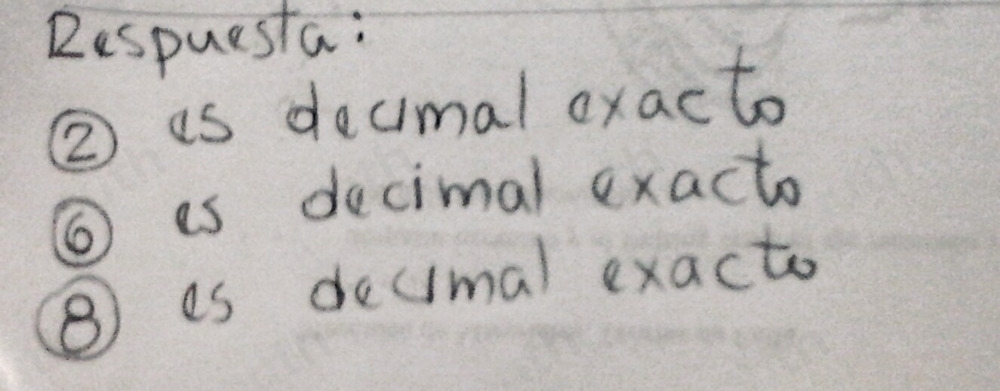 Respuesta:
② es decimal exacto
⑥ es decimal exacto
⑧ es decimal exacto